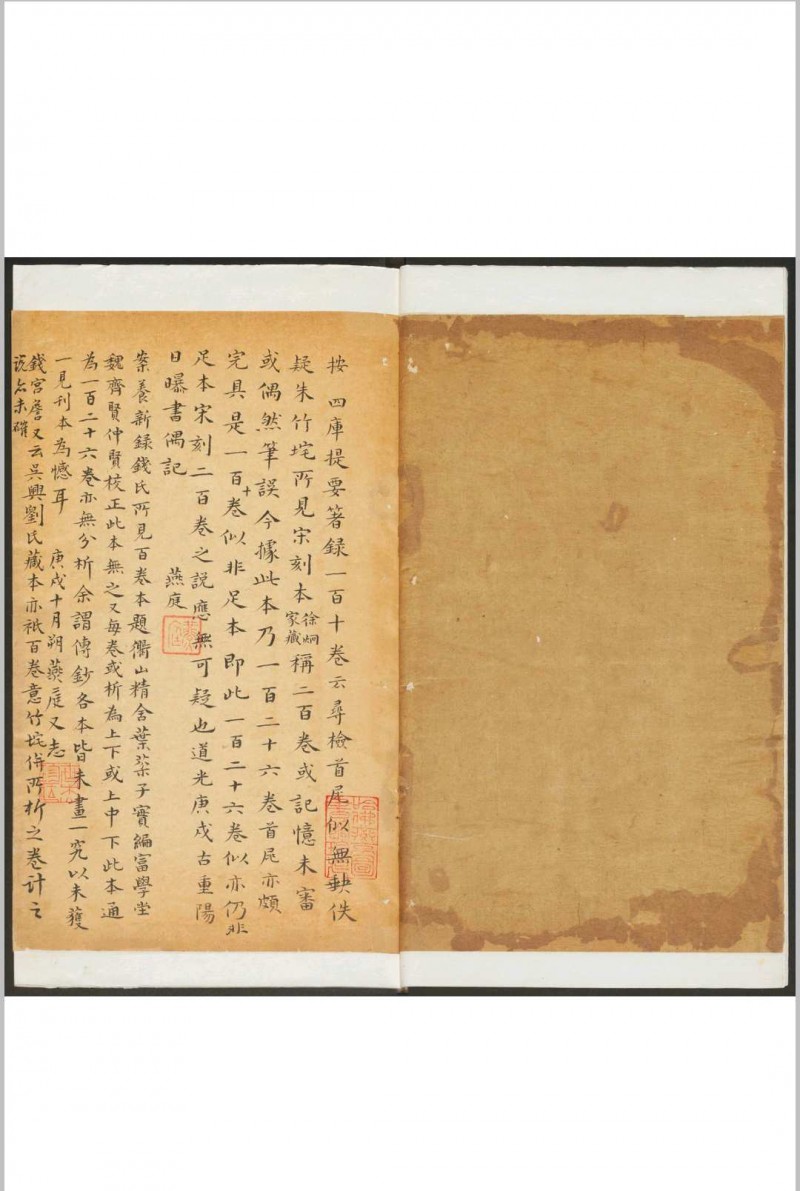 按四庫提要箸録一百十卷云尋檢首尾似無軼佚
疑朱竹垞所見宋刻本徐炯家藏稱二百卷或記憶未審
或偶然筆誤今據此本乃一百二十六卷首尾亦頗
完具是一百十卷似非足本即此一百二十六卷似亦仍非
足本宋刻二百卷之説應無可疑也道光庚戌古重陽
日曝書偶記 燕庭
案養新録錢氏所見百卷本題衢山精舍葉棻子實編富學堂
魏齊賢仲賢校正此本無之又每卷或析為上下或上中下此本通
為一百二十六卷亦無分析余謂傳鈔各本皆未畫一究以未獲
一見刊本為憾耳 庚戌十月朔燕庭又志
錢宫詹又云吳興劉氏藏本亦祇百卷意竹垞併所析之卷計之
說亦未確